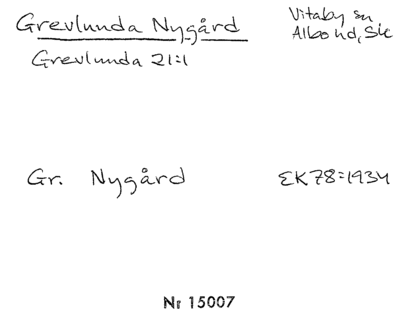 Grevlunda Nygård
Vitaby sn
Albo hd, Sk
Grevlunda 21:1
Gr. Nygård
EK78:1934
Nr 15007